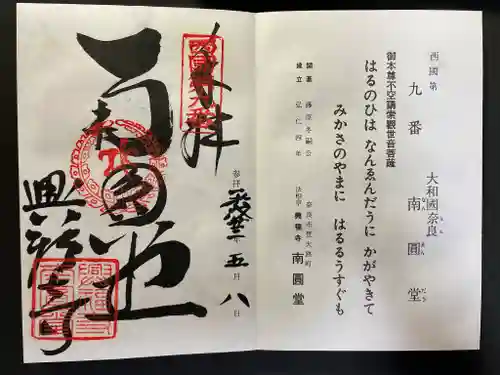 西國第
九番
大和國奈良
南圓堂
なんゑんだう
御本尊不空羂索觀世音菩薩
はるのひは なんゑんだうに かがやきて
みかさのやまに はるるうすぐも
開基 藤原冬嗣公
建立 弘仁四年
奈良市登大路町
法相宗 興福寺 南圓堂
奉拝
参拝
五月八日
西国第九番
南圓堂
興福寺